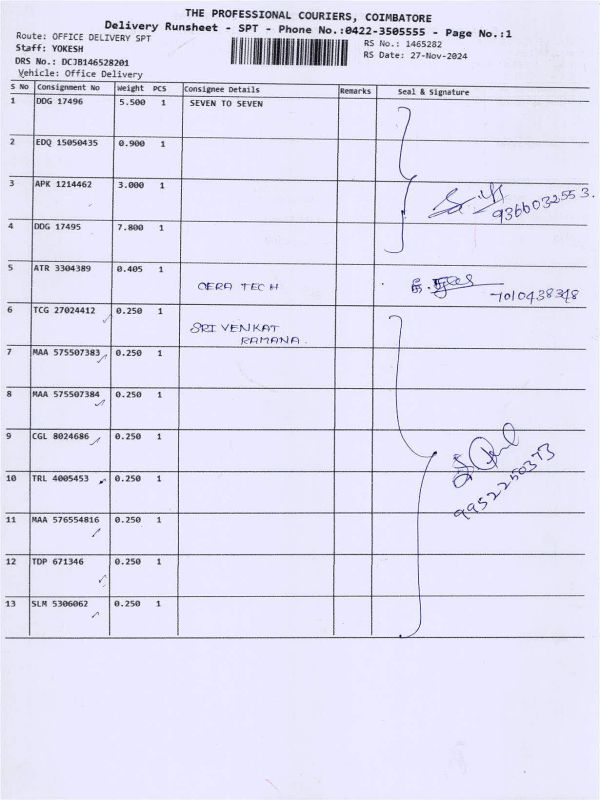 THE PROFESSIONAL COURIERS, COIMBATORE
Delivery Runsheet - SPT - Phone No.:0422-3505555 - Page No.:1
Route: OFFICE DELIVERY SPT
Staff: YOKESH
DRS No.: DCJB146528201
Vehicle: Office Delivery
RS No.: 1465282
RS Date: 27-Nov-2024
S No Consignment No Weight PCS Consignee Details Remarks Seal & Signature
1 DDG 17496 5.500 1 SEVEN TO SEVEN
2 EDQ 15050435 0.900 1
3 APK 1214462 3.000 1
9366032553.
4 DDG 17495 7.800 1
5 ATR 3304389 0.405 1
OERA TECH
7010438348
6 TCG 27024412 0.250 1
SRI VENKAT
RAMANA.
7 MAA 575507383 0.250 1
8 MAA 575507384 0.250 1
9 CGL 8024686 0.250 1
10 TRL 4005453 0.250 1
9952250373
11 MAA 576554816 0.250 1
12 TDP 671346 0.250 1
13 SLM 5306062 0.250 1